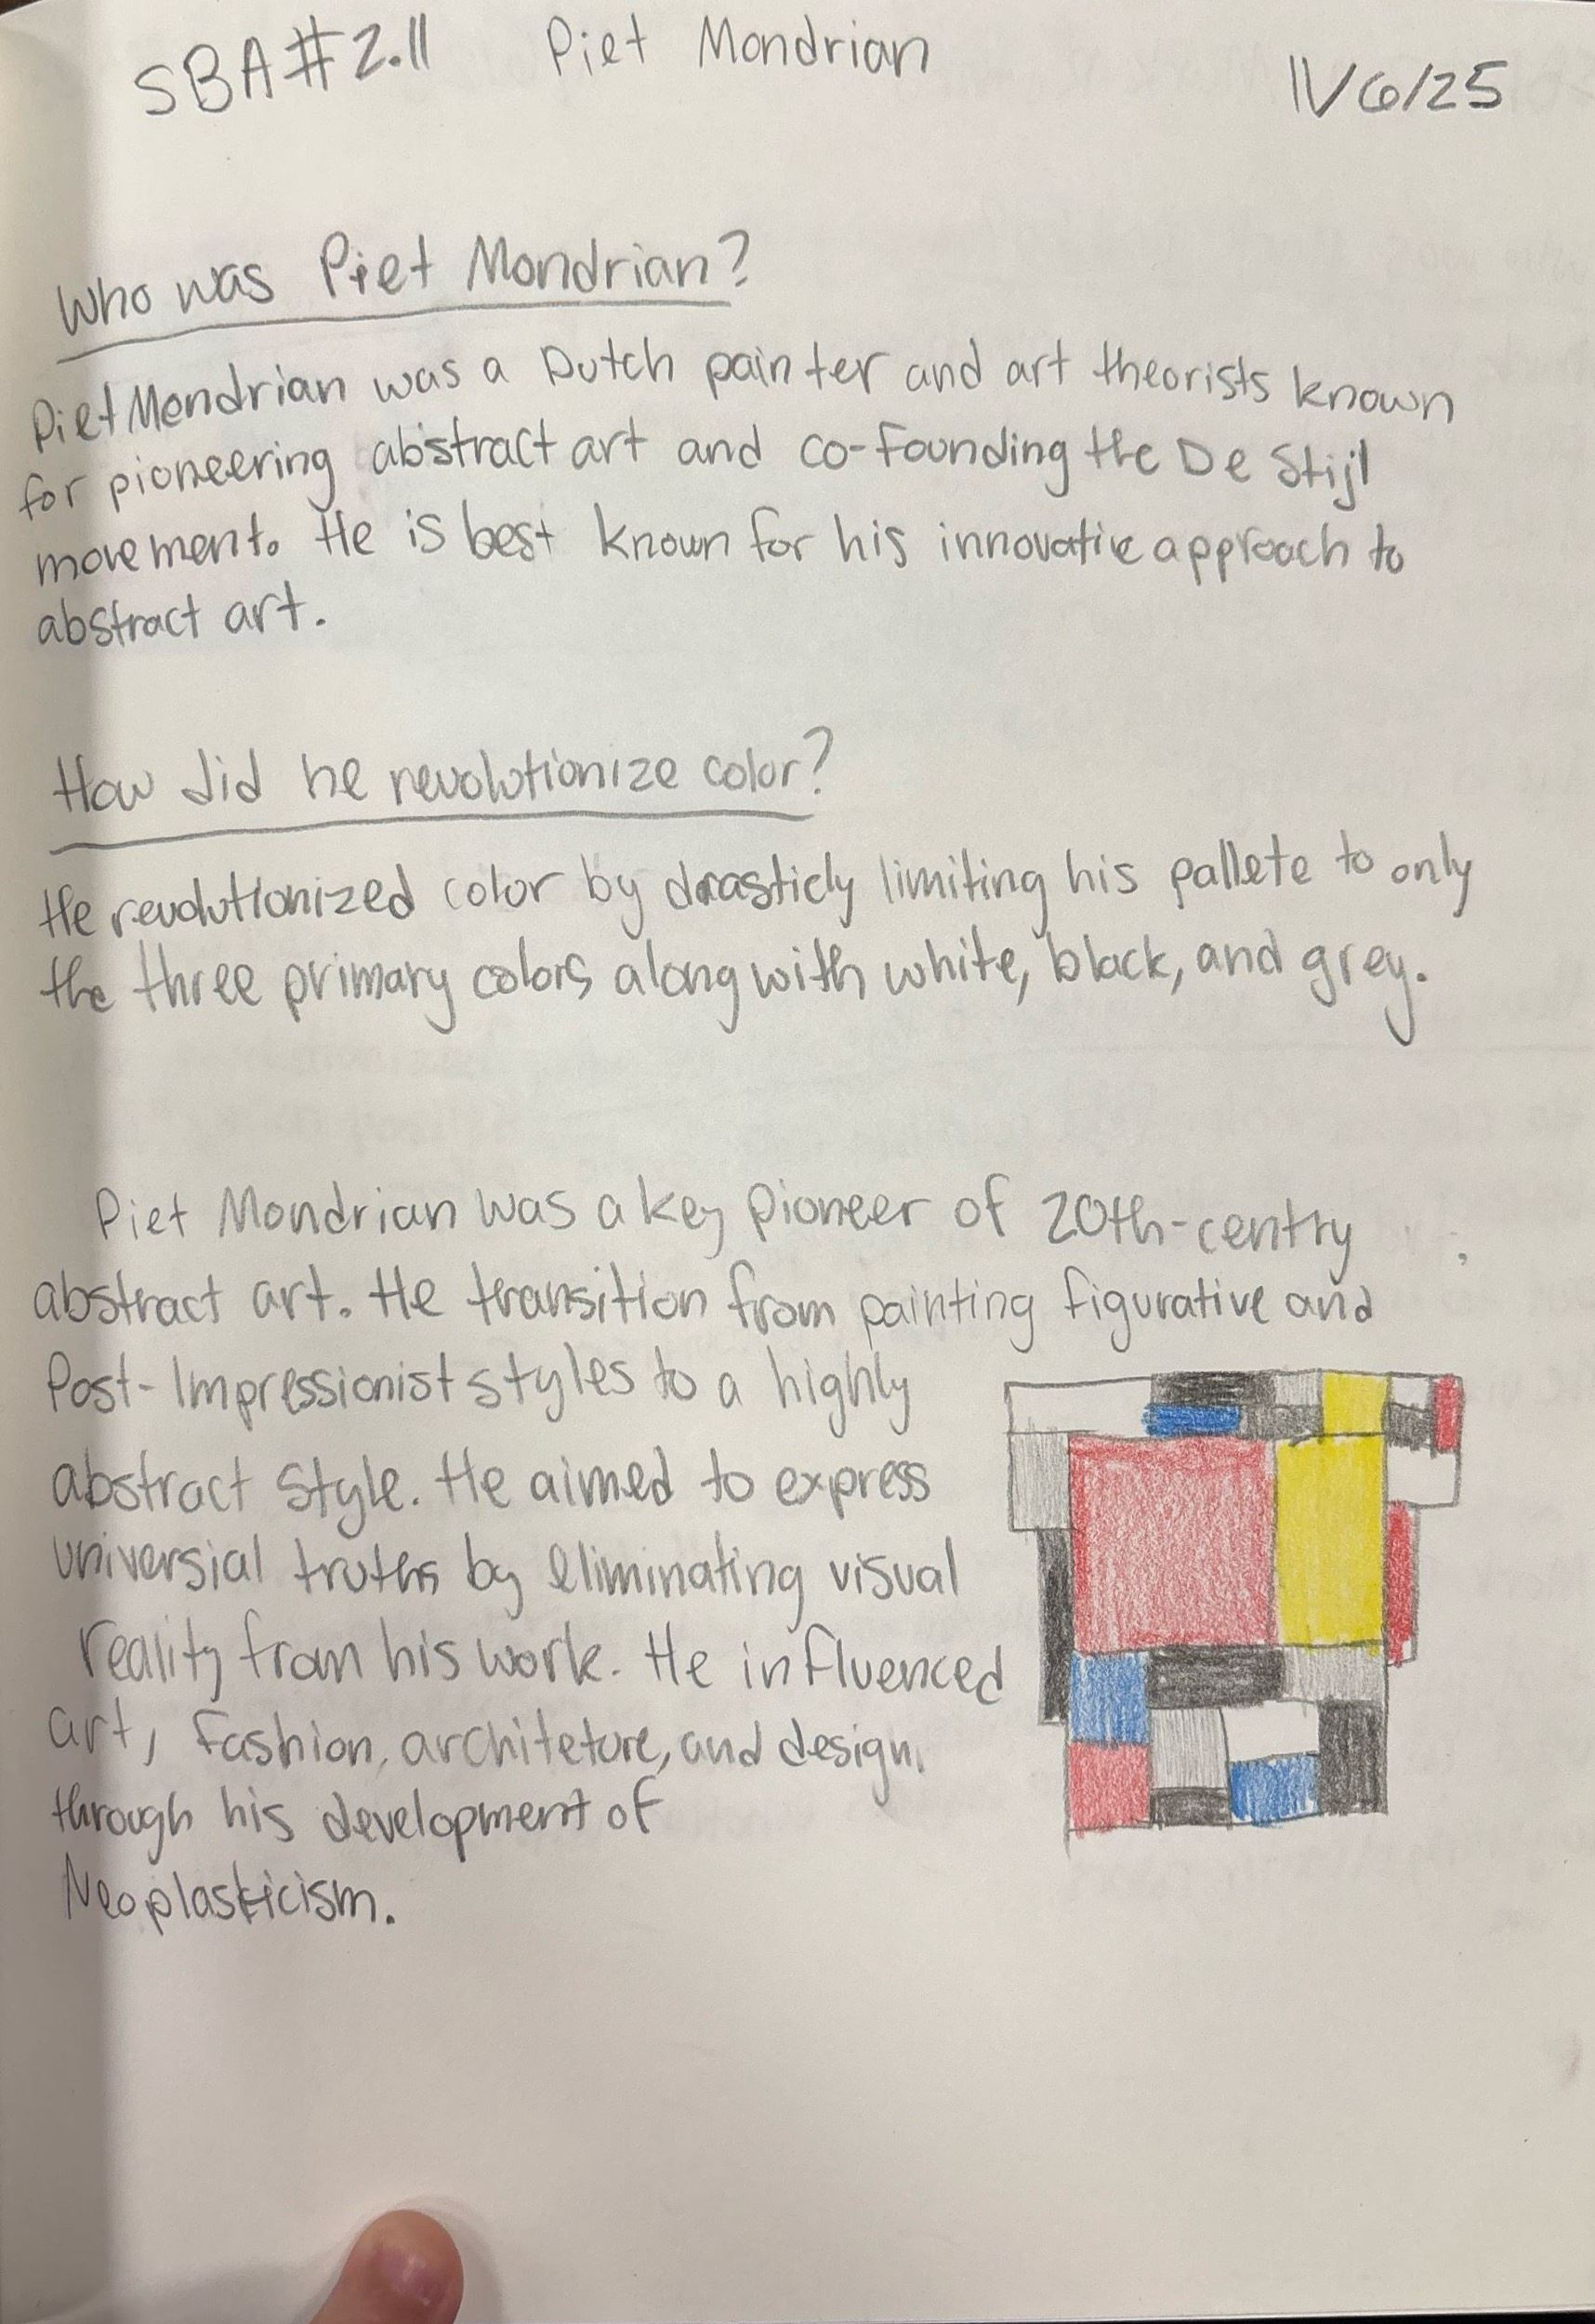 SBA#2.11 Piet Mondrian 11/6/25
Who was Piet Mondrian?
Piet Mondrian was a Dutch painter and art theorists known
for pioneering abstract art and co-founding the De Stijl
movement. He is best known for his innovative approach to
abstract art.
How did he revolutionize color?
He revolutionized color by drasticly limiting his pallete to only
the three primary colors along with white, black, and grey.
Piet Mondrian was a key pioneer of 20th-centry
abstract art. He transition from painting figurative and
Post-Impressionist styles to a highly
abstract style. He aimed to express
universial truths by eliminating visual
reality from his work. He influenced
art, fashion, architeture, and design,
through his development of
Neoplasticism.